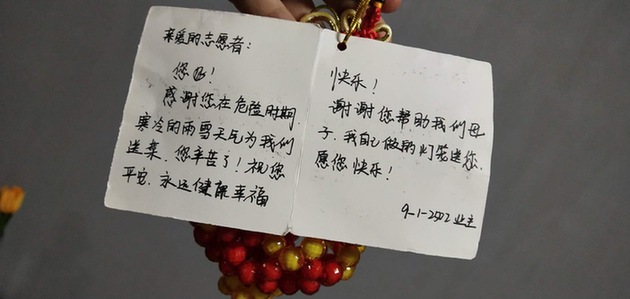 亲爱的志愿者：
您好！
感谢您在危险时期，
寒冷的雨雪天气为我们
送菜，您辛苦了！祝您
平安，永远健康幸福
快乐！
谢谢您帮助我们母
子，我自己做的灯笼送您，
愿您快乐！
9-1-2502 业主